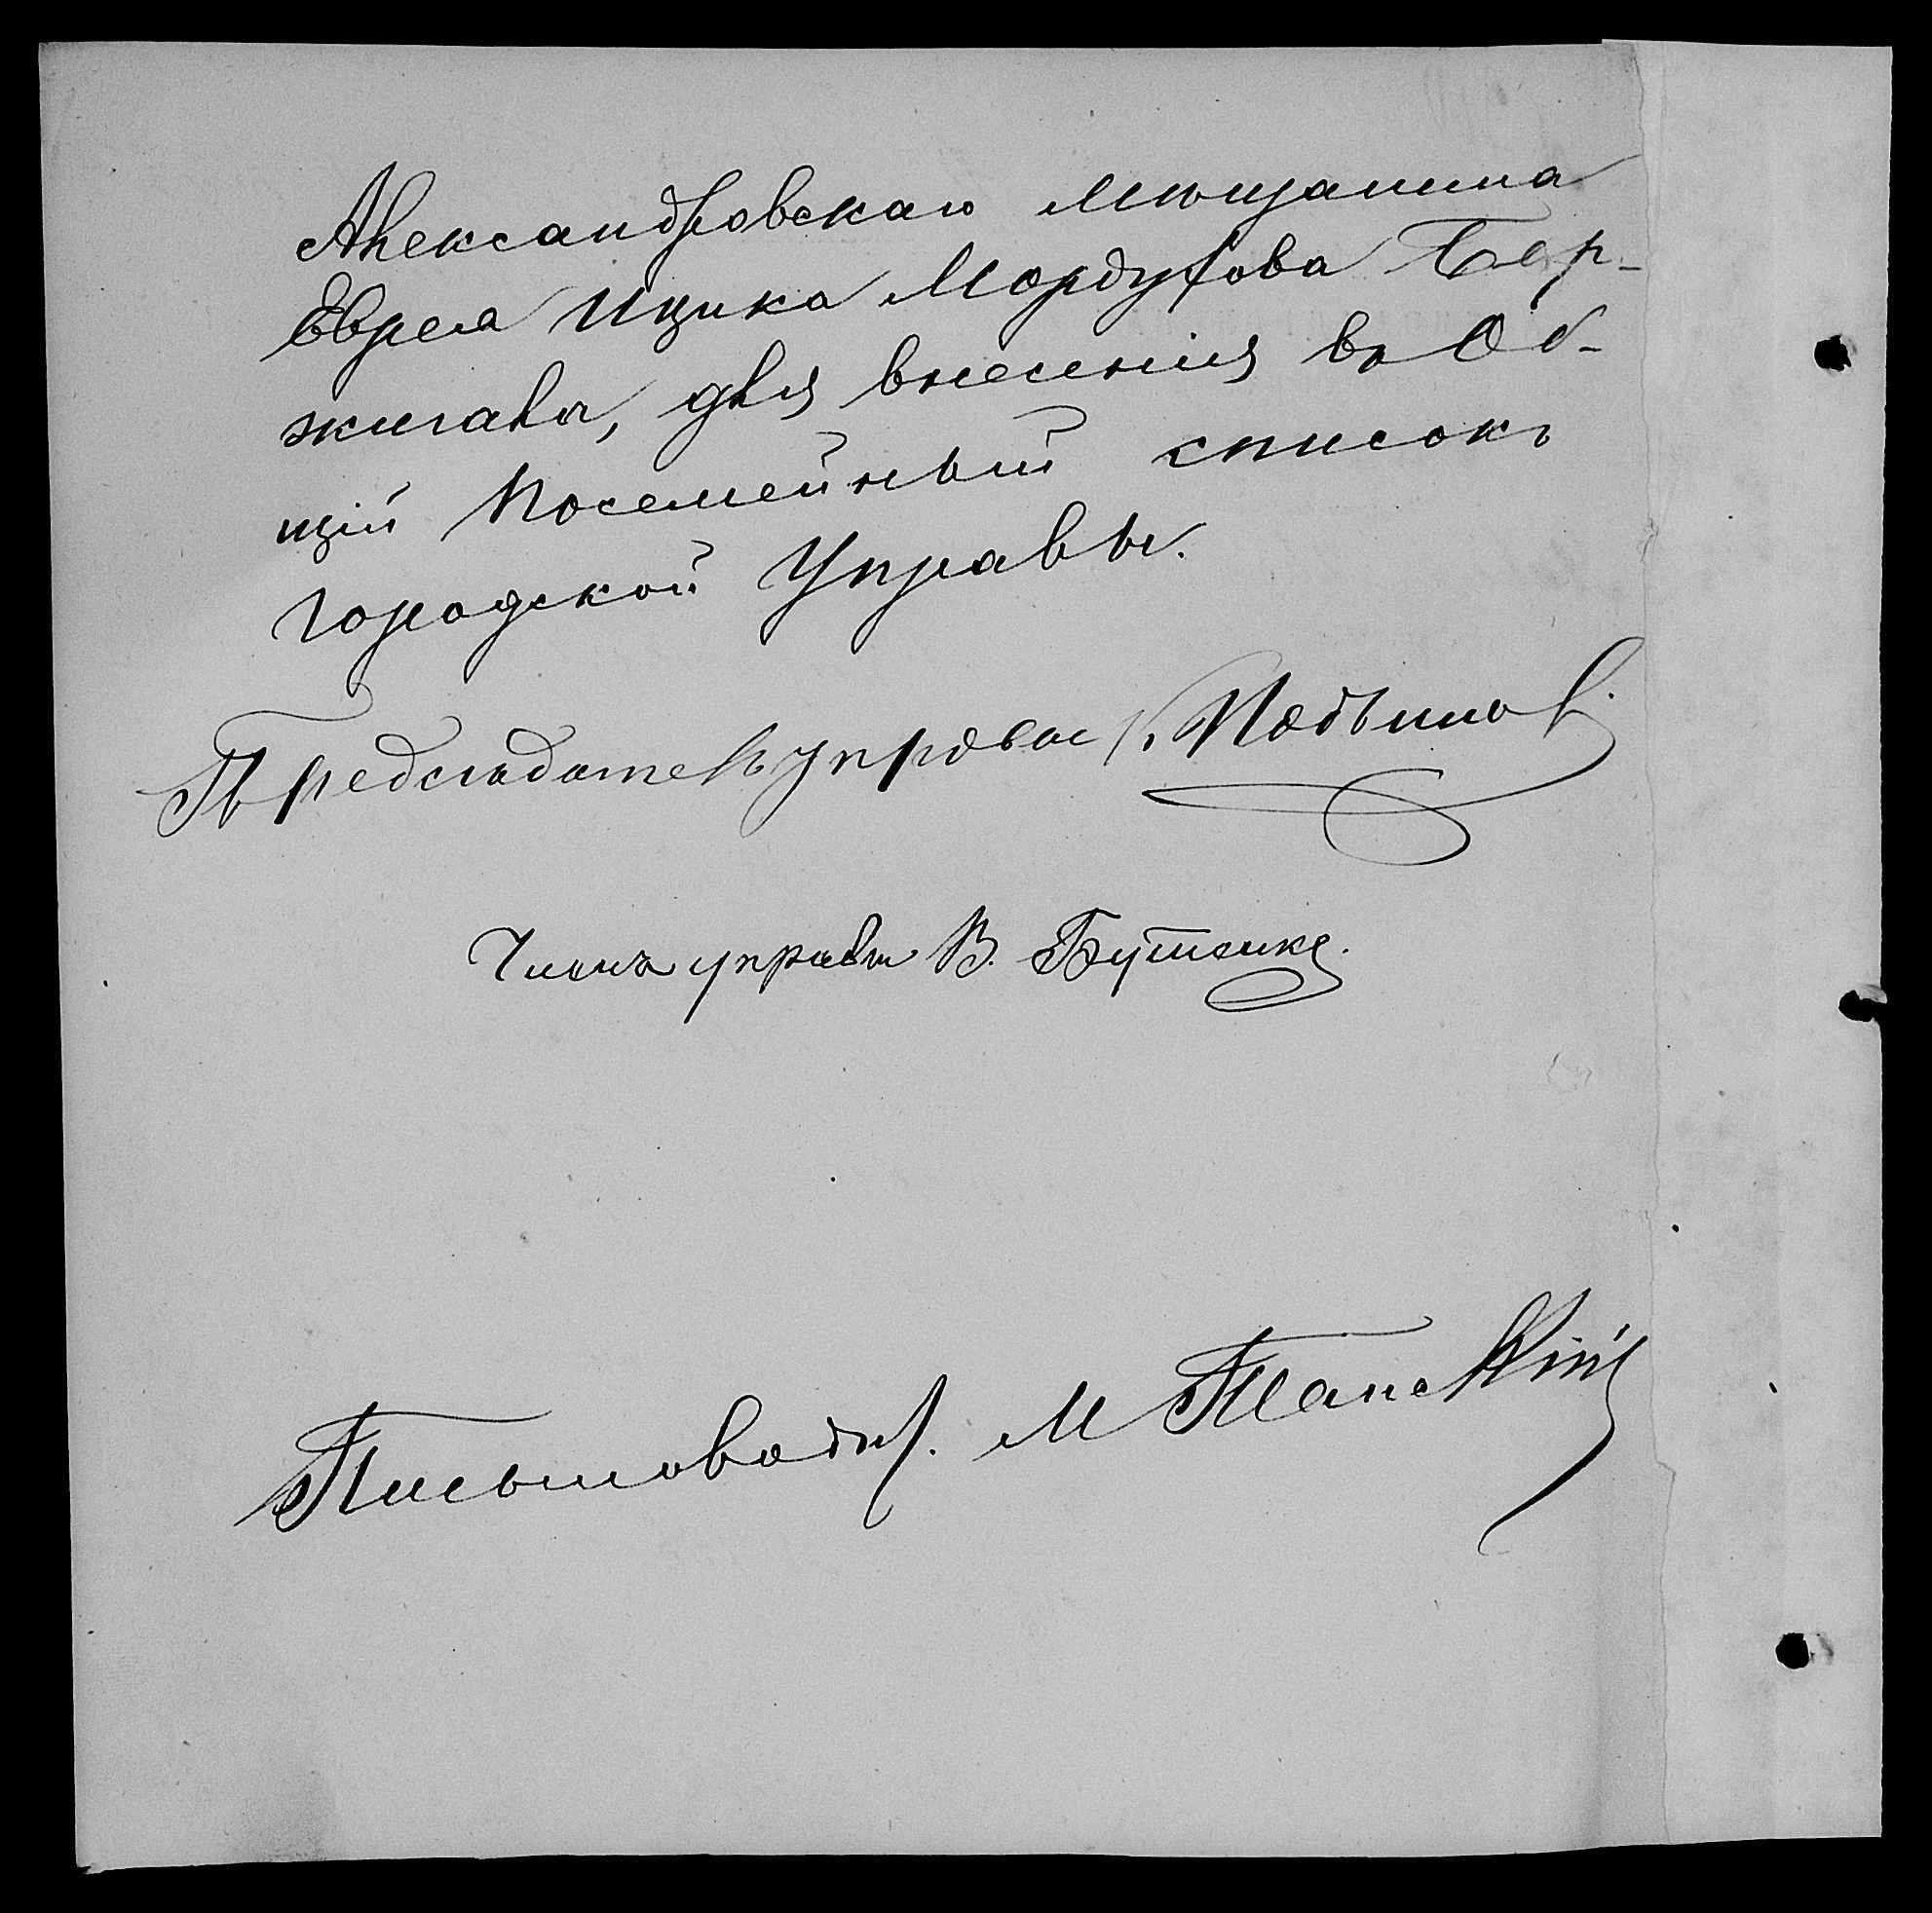 Александровскаго мѣщанина
Еврея Ицика Мордухова Бер-
жигала, для внесенія въ Об-
щій Посемейный списокъ
Городской Управы.
Предсѣдатель управы
Членъ управы В. Бутенко.
Письмовод. М